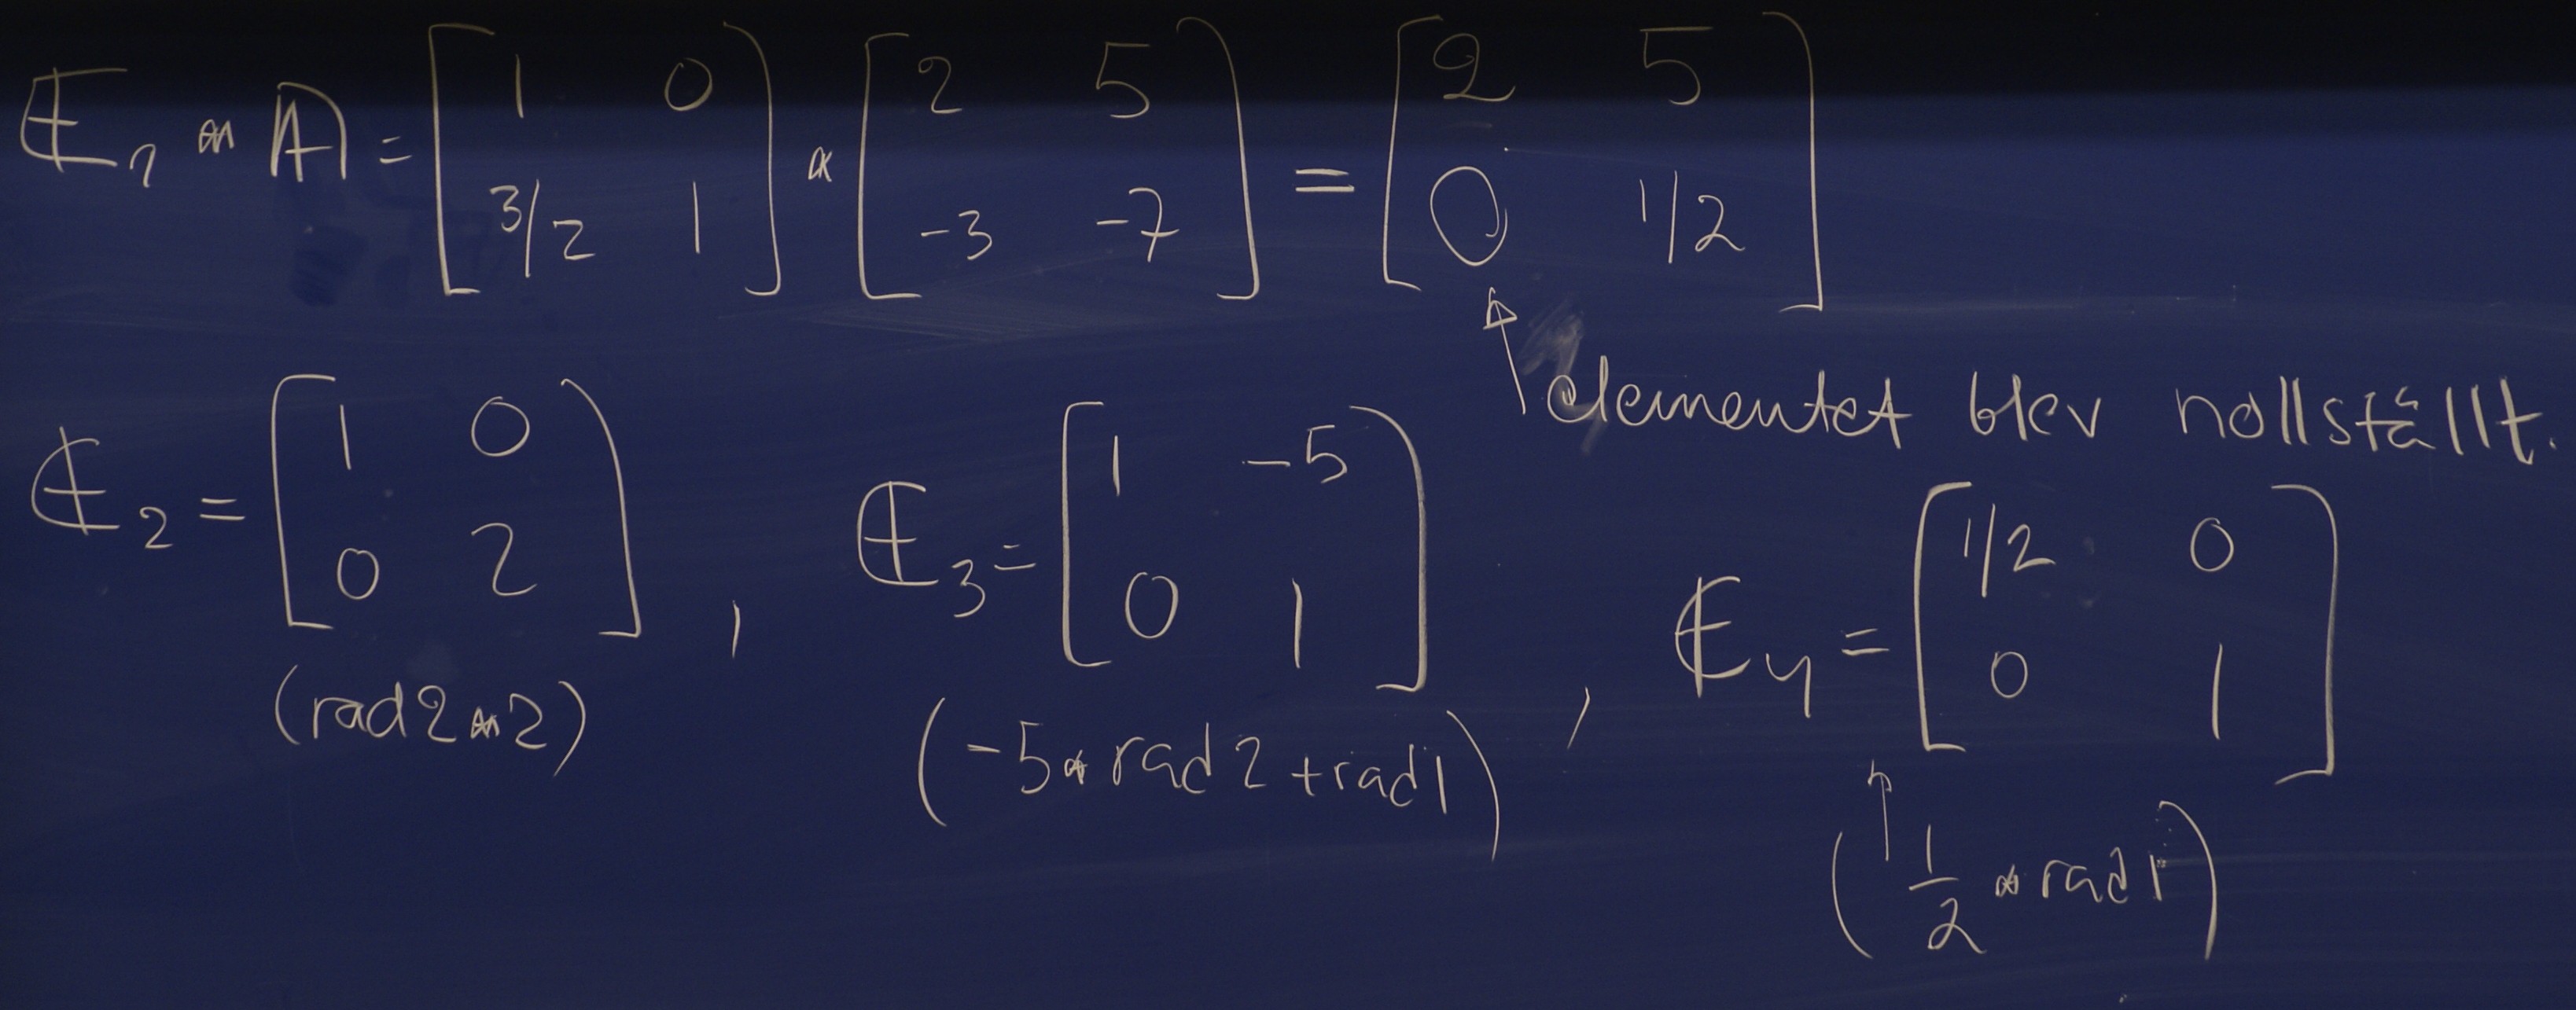 E₁ * A = [1 0; 3/2 1] * [2 5; -3 -7] = [2 5; 0 1/2]
elementet blev nollställt.
E₂ = [1 0; 0 2], E₃ = [1 -5; 0 1], E₄ = [1/2 0; 0 1]
(rad2*2) (-5*rad2+rad1) (1/2 * rad1)